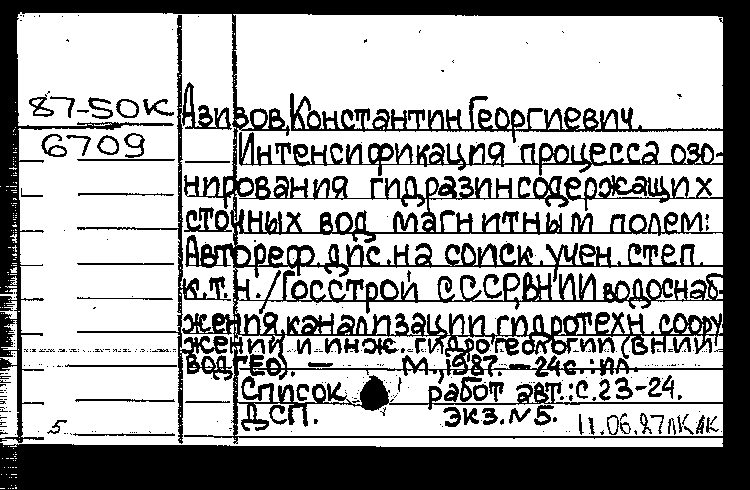 87-50К Азизов, Константин Георгиевич.
6709 Интенсификация процесса озо-
нирования гидразинсодержащих
сточных вод магнитным полем:
Автореф. дис. на соиск. учен. степ.
к.т.н. / Госстрой СССР, ВНИИ водоснаб-
жения, канализации, гидротехн. соору
жений и инж. гидрогеологии (ВНИИ
ВОДГЕО). — М., 1987. — 24с.: ил.
Список работ авт.: с. 23-24.
ДСП. экз. N5.
5 11.06.87